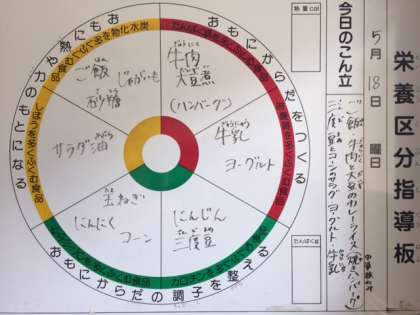 栄養区分指導板
5月18日 曜日
今日のこん立
ご飯 牛肉と大豆のカレーライス 焼きハンバーグ
三度豆とコーンのサラダ ヨーグルト 牛乳
熱量cal
たんぱく質
おもにからだをつくる
おもにからだの調子を整える
力や熱になる
おもに
もとになる
炭水化物を多くふくむ食品
しぼうを多くふくむ食品
カロチンを
ご飯
じゃがいも
砂糖
ぎゅうにく
牛肉
大豆煮
(ハンバーグ)
サラダ油
ぎゅうにゅう
牛乳
ヨーグルト
玉ねぎ
にんにく
コーン
にんじん
三度豆